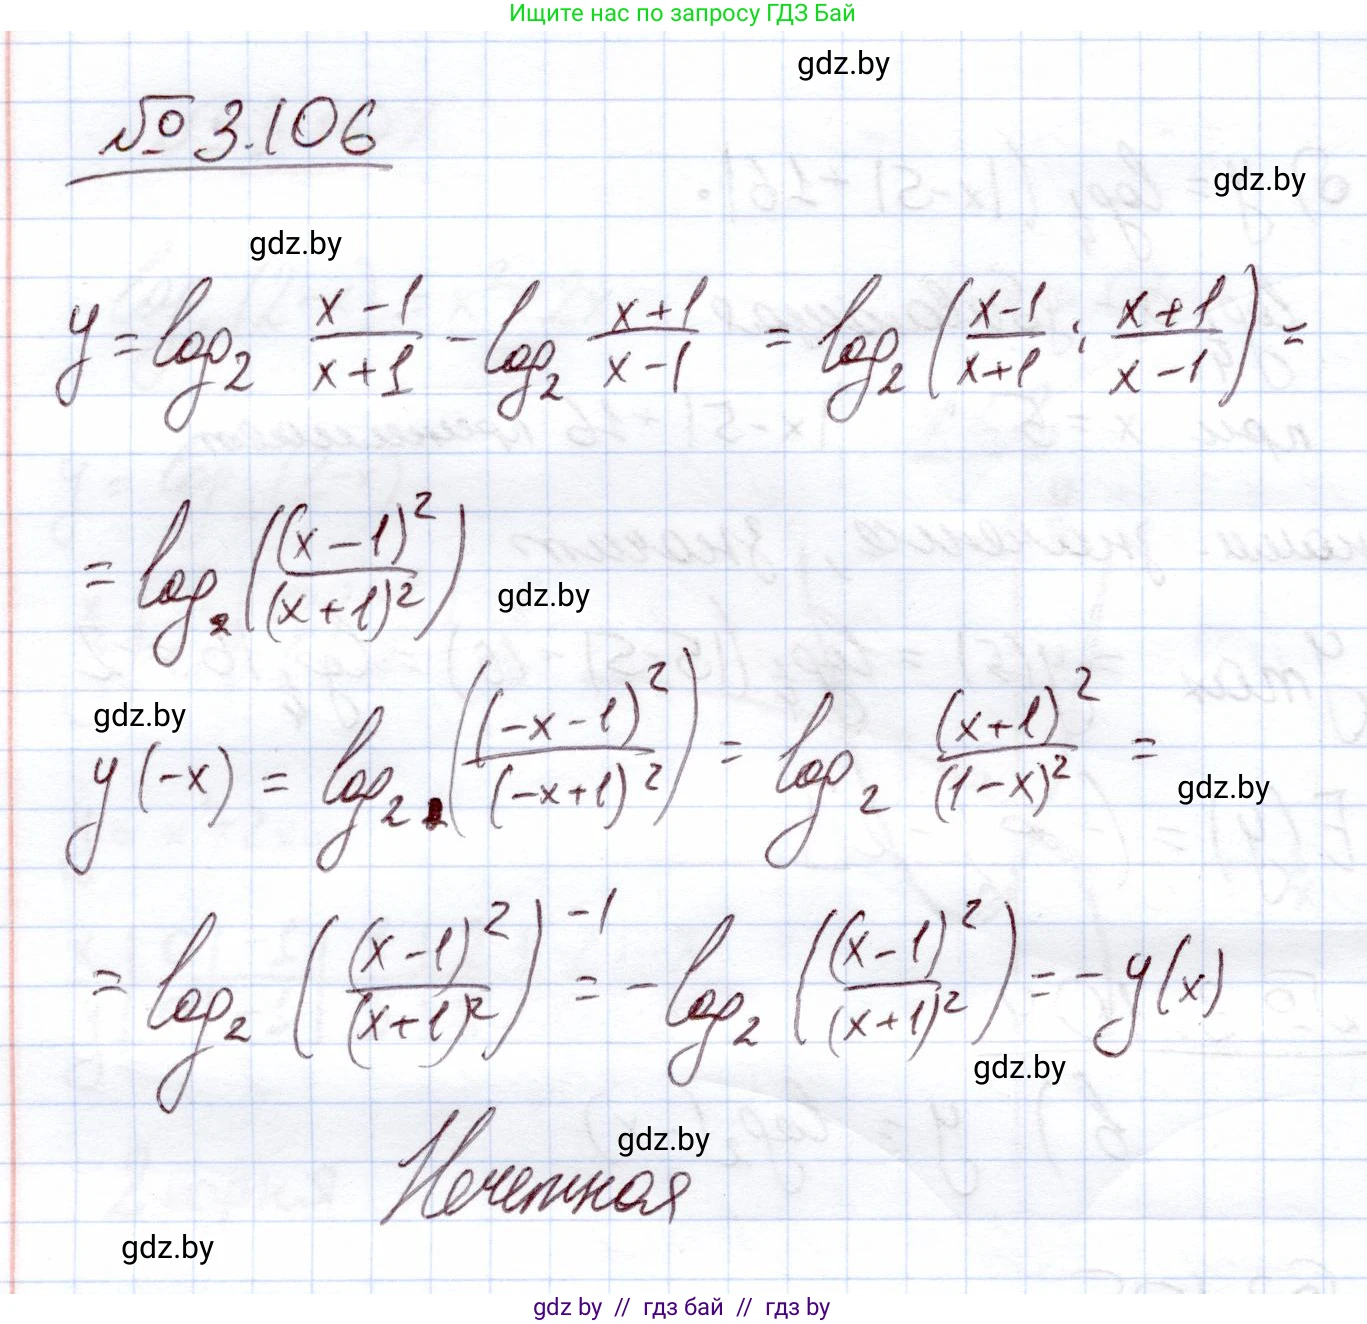 Ищите нас по запросу ГДЗ Бай
gdz.by
№ 3.106
gdz.by
gdz.by
y = log₂ (x-1)/(x+1) - log₂ (x+1)/(x-1) = log₂((x-1)/(x+1) : (x+1)/(x-1)) =
= log₂((x-1)²/(x+1)²)
gdz.by
gdz.by
y(-x) = log₂((-x-1)²/(-x+1)²) = log₂ (x+1)²/(1-x)² =
gdz.by
= log₂((x-1)²/(x+1)²)⁻¹ = -log₂((x-1)²/(x+1)²) = -y(x)
gdz.by
gdz.by
Нечетная
gdz.by
gdz by // гдз бай // гдз by